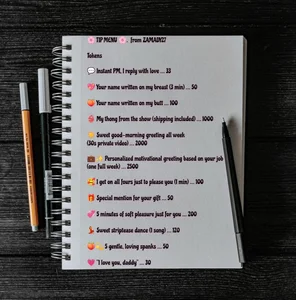 🌸 TIP MENU 🌸. from ZAMADY27
Tokens
💬 Instant PM, I reply with love ... 33
💖 Your name written on my breast (3 min) ... 50
🍑 Your name written on my butt ... 100
👙 My thong from the show (shipping included) ... 1000
☀️ Sweet good-morning greeting all week
(30s private video) ... 2000
💼✨ Personalized motivational greeting based on your job
(one full week) ... 2500
🥰 I get on all fours just to please you (1 min) ... 100
🎁 Special mention for your gift ... 50
💕 5 minutes of soft pleasure just for you ... 200
💃 Sweet striptease dance (1 song) ... 120
🍑✨ 5 gentle, loving spanks ... 50
💗 "I love you, daddy" ... 30